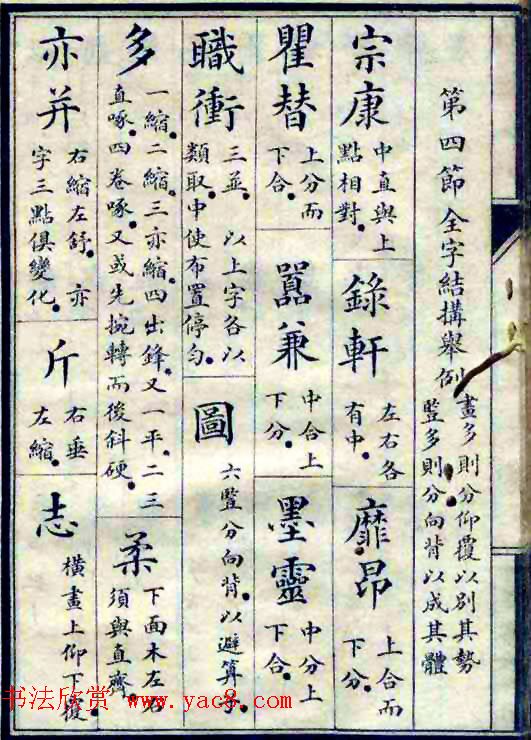 第四節 全字結構舉例
畫多則分仰覆以別其勢
豎多則分向背以成其體
宗康
中直與上
點相對。
錄軒
左右各
有中。
靡昂
上合而
下分。
瞿替
上分而
下合。
嚣兼
中合上
下分。
墨靈
中分上
下合。
職衝
三並。以上字各以
類取。中使布置停勻。
圖
六豎分向背。以避算子。
多
一縮。二縮。三亦縮。四出鋒。又一平。二三
直啄。四卷啄。又或先捥轉而後斜硬。
柔
下面木左右
須與直齊。
亦并
右縮左舒。亦
字三點俱變化。
斤
右垂
左縮。
志
橫畫上仰下覆。
书法欣赏 www.yac8.com